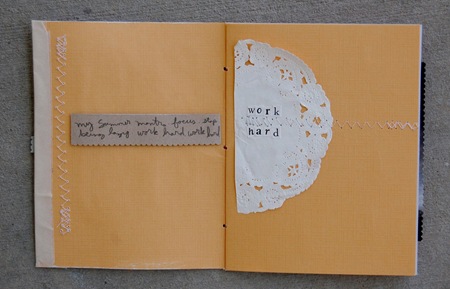 my Summer mantra focus stop
being lazy work hard work hard
work
hard